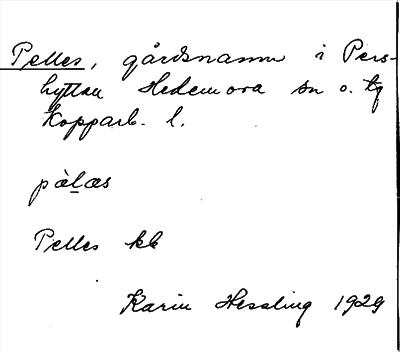 Pelles, gårdsnamn i Pers-
hyttan Hedemora sn o. tg
Kopparb. l.
pàlæs
Pelles kb
Karin Hessling 1929